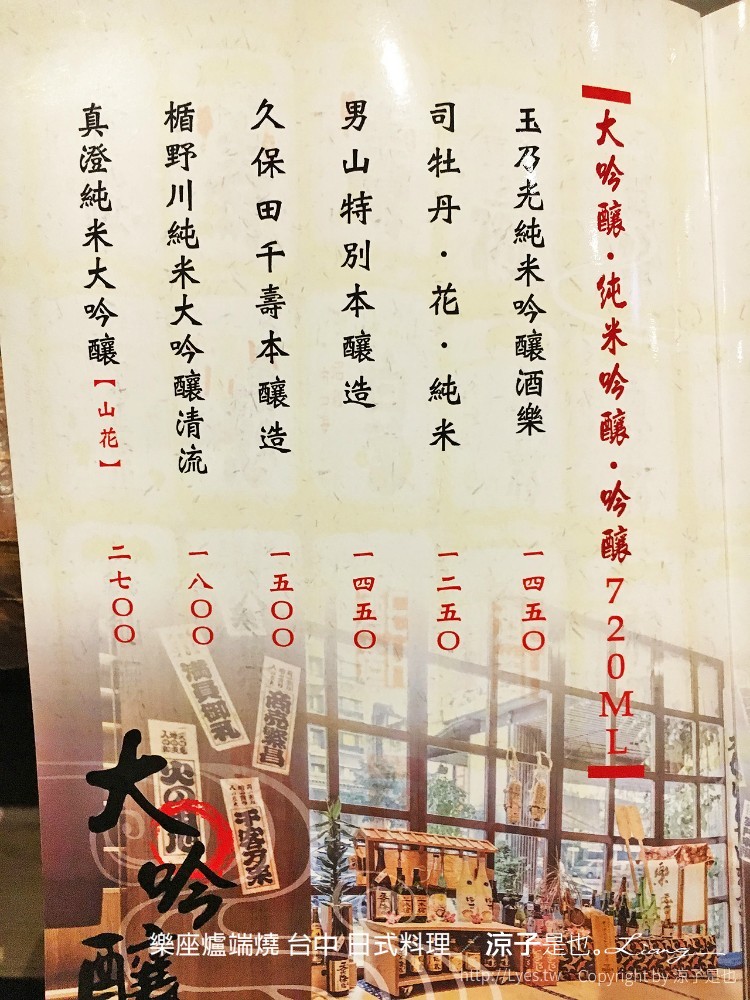 大吟釀·純米吟釀·吟釀720ML
玉乃光純米吟釀酒樂
一四五〇
司牡丹·花·純米
一二五〇
男山特別本釀造
一四五〇
久保田千壽本釀造
一五〇〇
楯野川純米大吟釀清流
一八〇〇
真澄純米大吟釀【山花】
二七〇〇
滿員御礼
商売繁昌
千客万来
大吟釀
樂座爐端燒 台中 日式料理 / 涼子是也。Ling
http://Lyes.tw Copyright by 涼子是也